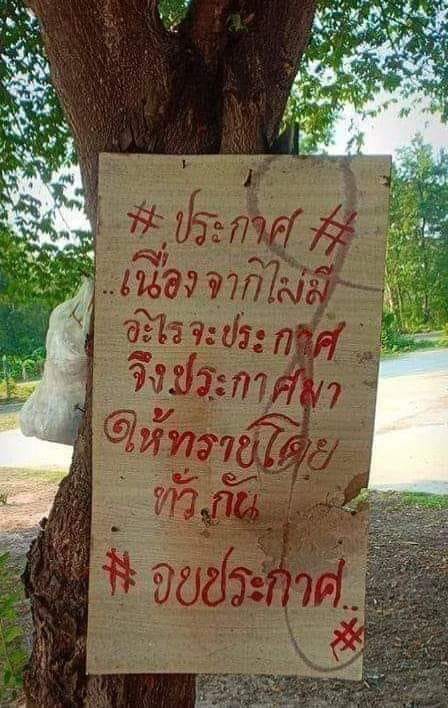 # ประกาศ #
..เนื่องจากไม่มี
อะไรจะประกาศ
จึงประกาศมา
ให้ทราบโดย
ทั่วกัน
# จบประกาศ..
#